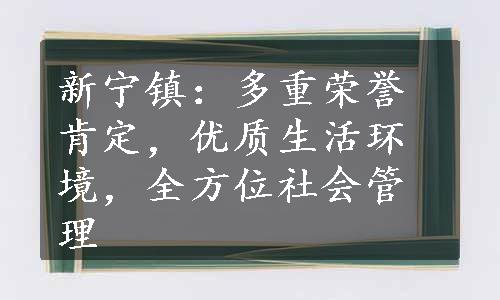 新宁镇：多重荣誉
肯定，优质生活环
境，全方位社会管
理